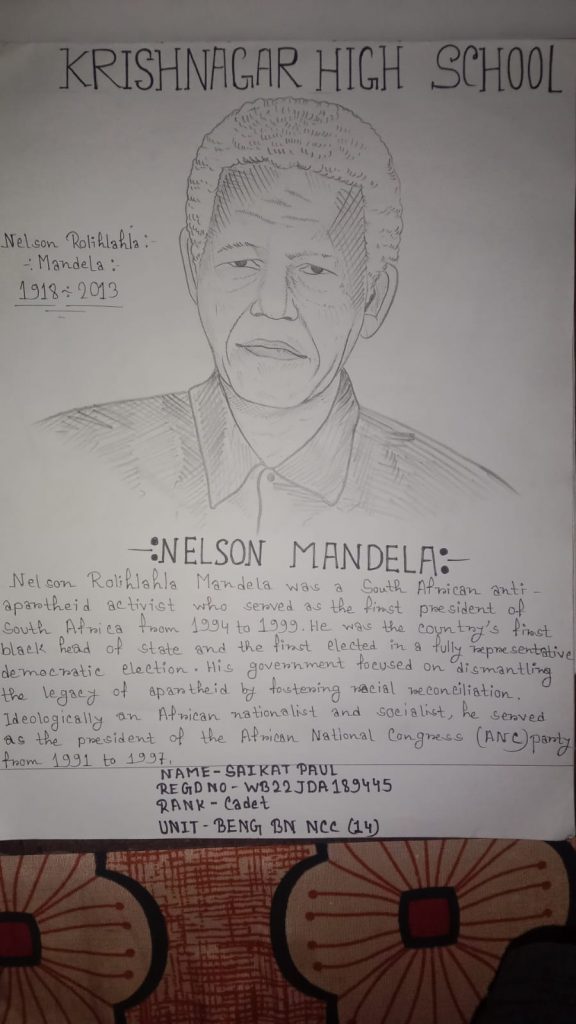 KRISHNAGAR HIGH SCHOOL
Nelson Rolihlahla :-
-: Mandela :
1918 ÷ 2013
-:NELSON MANDELA:-
Nelson Rolihlahla Mandela was a South African anti-
apartheid activist who served as the first president of
South Africa from 1994 to 1999. He was the country's first
black head of state and the first elected in a fully representative
democratic election. His government focused on dismantling
the legacy of apartheid by fostering racial reconciliation.
Ideologically an African nationalist and socialist, he served
as the president of the African National Congress (ANC) party
from 1991 to 1997.
NAME - SAIKAT PAUL
REGD NO - WB22JDA189445
RANK - Cadet
UNIT - BENG BN NCC (14)